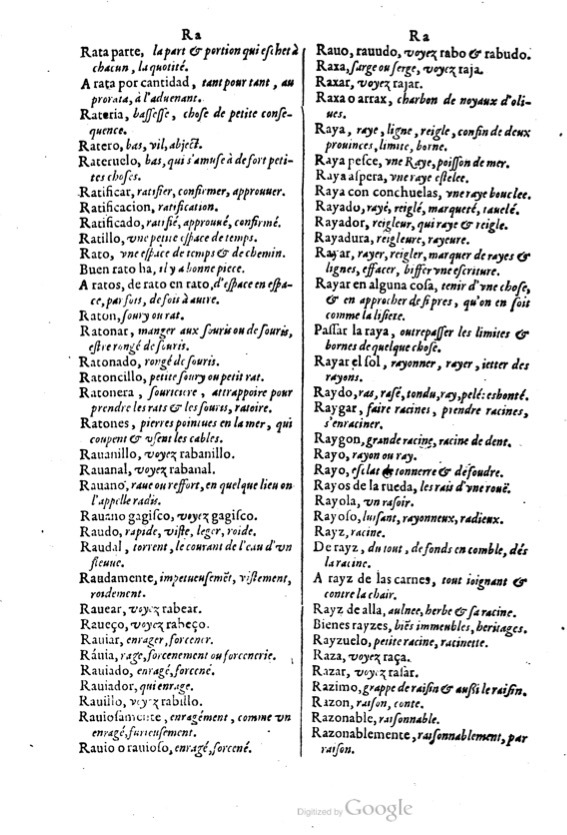 Ra
Rata parte, la part & portion qui eschet à
chacun, la quotité.
A rata por cantidad, tant pour tant, au
prorata, à l'aduenant.
Rateria, bassesse, chose de petite conse-
quence.
Ratero, bas, vil, abject.
Rateruelo, bas, qui s'amuse à de fort peti-
tes choses.
Ratificar, ratifier, confirmer, approuuer.
Ratificacion, ratification.
Ratificado, ratifié, approuué, confirmé.
Ratillo, vne petite espace de temps.
Rato, vne espace de temps & de chemin.
Buen rato ha, il y a bonne piece.
A ratos, de rato en rato, d'espace en espa-
ce, par fois, de fois à autre.
Raton, soury ou rat.
Ratonar, manger aux souris ou de souris,
estre rongé de souris.
Ratonado, rongé de souris.
Ratoncillo, petite soury ou petit rat.
Ratonera, souriciere, attrappoire pour
prendre les rats & les souris, ratoire.
Ratones, pierres pointues en la mer, qui
coupent & vsent les cables.
Rauanillo, voyez rabanillo.
Rauanal, voyez rabanal.
Rauano, raue ou reffort, en quelque lieu on
l'appelle radis.
Rauano gagisco, voyez gagisco.
Raudo, rapide, viste, leger, roide.
Raudal, torrent, le courant de l'eau d'vn
fleuue.
Raudamente, impetueusemẽt, vistement,
roidement.
Rauear, voyez rabear.
Raueço, voyez rabeço.
Rauiar, enrager, forcener.
Ráuia, rage, forcenement ou forcenerie.
Rauiado, enragé, forcené.
Rauiador, qui enrage.
Rauillo, voyez rabillo.
Rauiosamente, enragément, comme vn
enragé, furieusement.
Rauio o rauioso, enragé, forcené.
Ra
Rauo, rauudo, voyez rabo & rabudo.
Raxa, sarge ou serge, voyez raja.
Raxar, voyez rajar.
Raxa o arrax, charbon de noyaux d'oli-
ues.
Raya, raye, ligne, reigle, confin de deux
prouinces, limite, borne.
Raya pesce, vne Raye, poisson de mer.
Raya aspera, vne raye estelee.
Raya con conchuelas, vne raye bouclee.
Rayado, rayé, reiglé, marqueté, tauelé.
Rayador, reigleur, qui raye & reigle.
Rayadura, reigleure, rayeure.
Rayar, rayer, reigler, marquer de rayes &
lignes, effacer, biffer vne escriture.
Rayar en alguna cosa, tenir d'vne chose,
& en approcher de si pres, qu'on en soit
comme la lisiere.
Passar la raya, outrepasser les limites &
bornes de quelque chose.
Rayar el sol, rayonner, rayer, ietter des
rayons.
Raydo, ras, rasé, tondu, ray, pelé: eshonté.
Raygar, faire racines, prendre racines,
s'enraciner.
Raygon, grande racine, racine de dent.
Rayo, rayon ou ray.
Rayo, esclat de tonnerre & de foudre.
Rayos de la rueda, les rais d'vne rouë.
Rayola, vn rasoir.
Rayoso, luisant, rayonneux, radieux.
Rayz, racine.
De rayz, du tout, de fonds en comble, dés
la racine.
A rayz de las carnes, tout ioignant &
contre la chair.
Rayz de alla, aulnee, herbe & sa racine.
Bienes rayzes, biẽs immeubles, heritages.
Rayzuelo, petite racine, racinette.
Raza, voyez raça.
Razar, voyez rasar.
Razimo, grappe de raisin & aussi le raisin.
Razon, raison, conte.
Razonable, raisonnable.
Razonablemente, raisonnablement, par
raison.
Digitized by Google